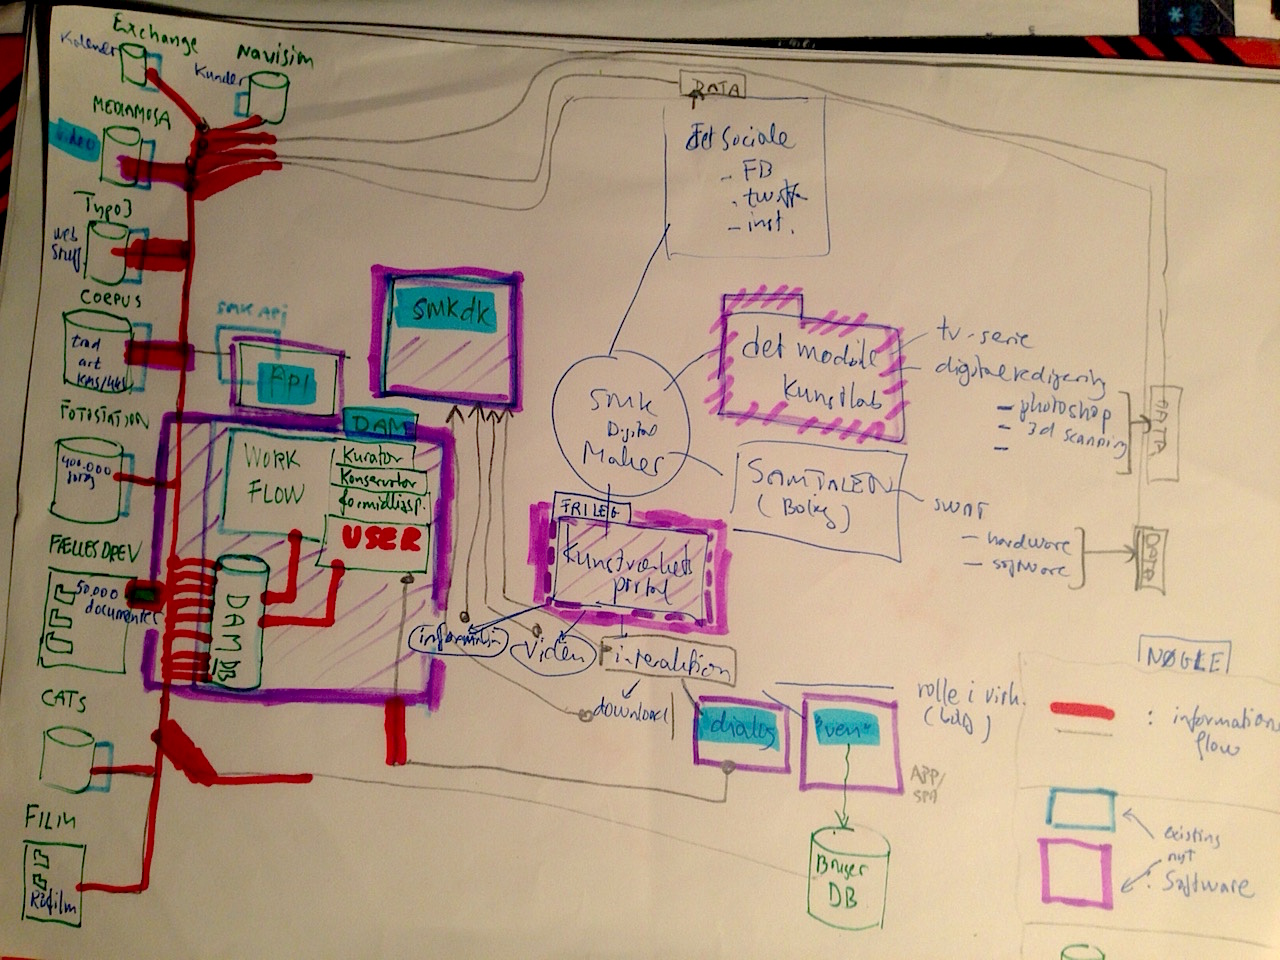 Exchange
Navision
Kunder
MEDIAMOSA
video
Typo3
web
stuff
CORPUS
trad
art
KMS/KKS
FOTOSTATION
400.000
FÆLLESDREV
50.000
documenter
CATS
FILM
Råfilm
SMK Api
Api
smkdk
DAM
WORK
FLOW
Kurator
Konservator
formidlingsp.
USER
DAM
DB
DATA
det sociale
- FB
- inst.
smk
Digital
Maker
det mobile
Kunstlab
tv-serie
digital redigering
- photoshop
- 3d scanning
-
DATA
SAMTALEN
(Bolig)
SWOT
- hardware
- software
DATA
FRILEG
Kunstværkets
portal
information
Viden
interaktion
download
dialog
"ven"
rolle i virk.
APP/
Bruger
DB
NØGLE
: informations
flow
existing
nyt
: Software